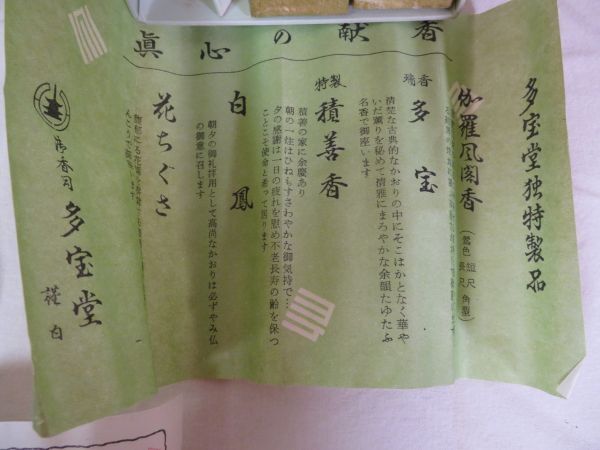 眞心の献香
多宝堂独特製品
伽羅凤阁香
(鶯色 短尺 角型)
長尺
瑞香
多宝
清楚な古典的なかおりの中にそこはかとなく華や
いだ薫りを秘めて清雅にまろやかな余韻たゆたふ
名香で御座います
特製
積善香
積善の家に余慶あり
朝の一炷はひねもすさわやかな御気持で…
夕の感謝は一日の疲れを慰め不老長寿の齢を保つ
ことこそ使命と希って居ります
白鳳
朝夕の御礼拝用として高尚なかおりは必ずやみ仏
の御意に召します
花ちぐさ
御香司
多宝堂
謹白